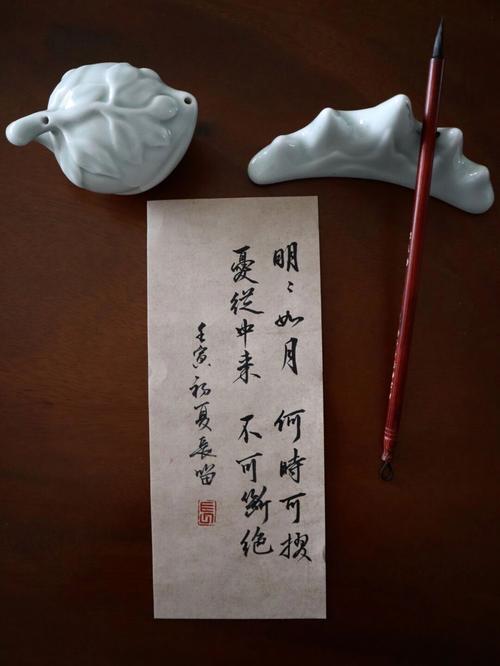 明〻如月　何時可掇
憂從中来　不可斷絶
壬寅初夏長𠵽